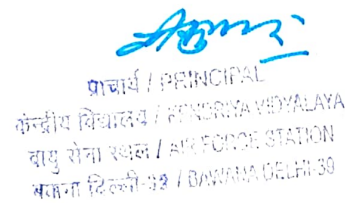 प्राचार्य / PRINCIPAL
केन्द्रीय विद्यालय / KENDRIYA VIDYALAYA
वायु सेना स्थल / AIR FORCE STATION
बवाना दिल्ली-39 / BAWANA DELHI-39